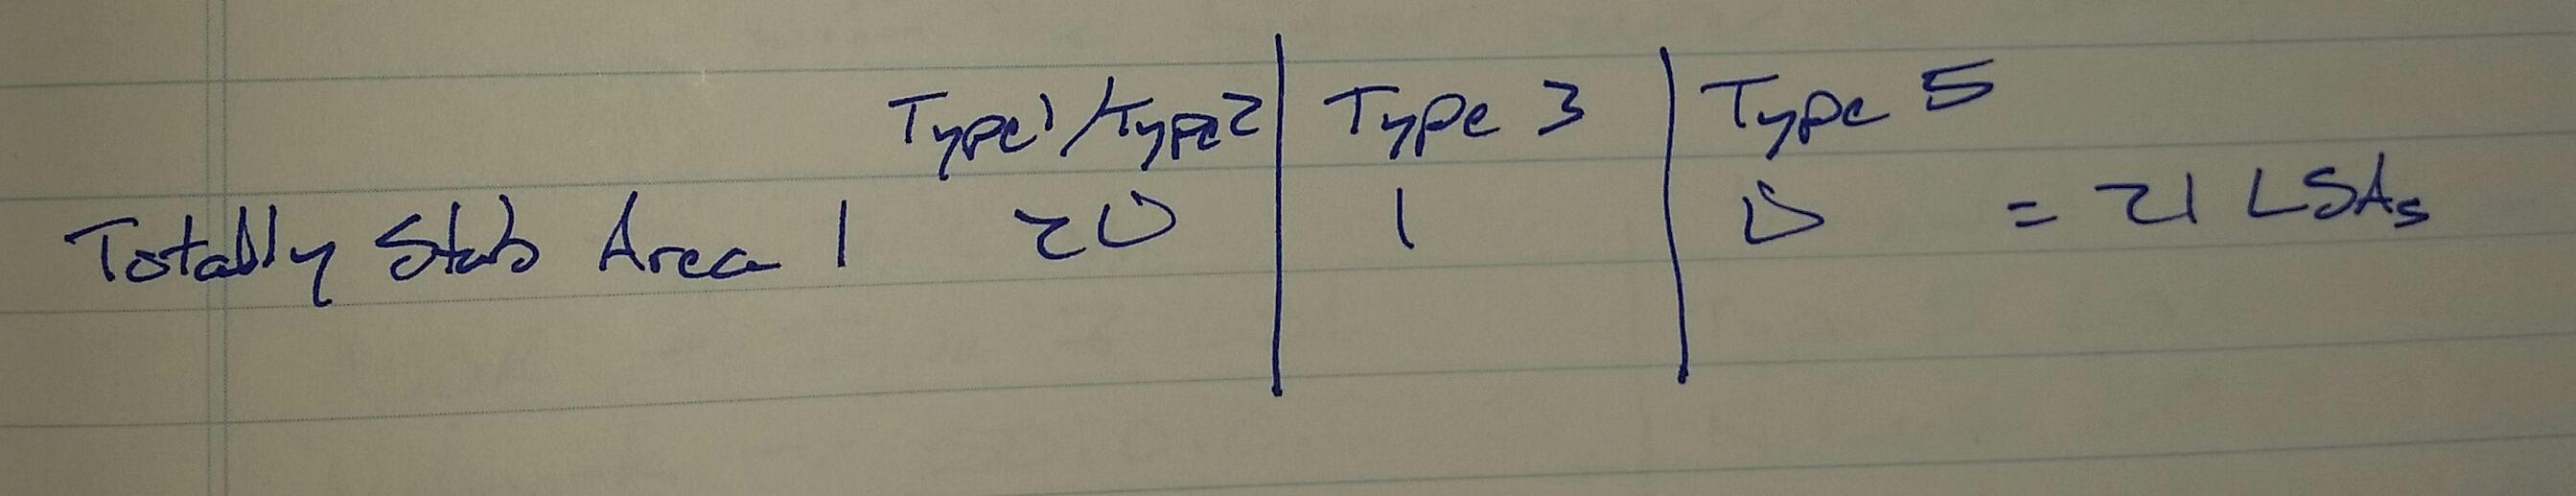 Type1/Type2 | Type 3 | Type 5
Totally Stub Area 1 20 | 1 | 0 = 21 LSAs